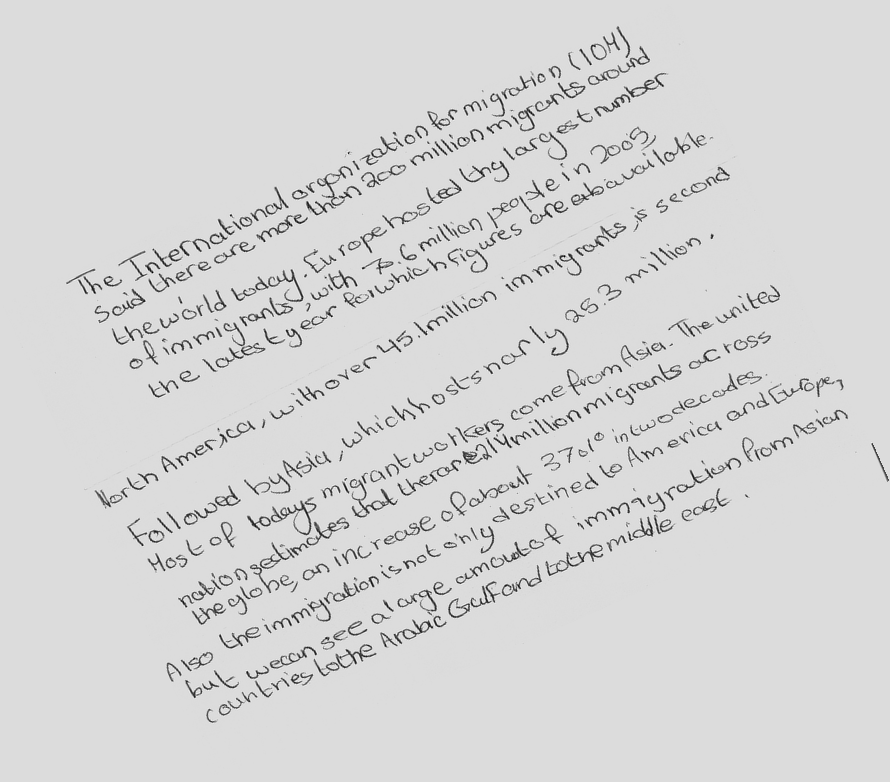 The International organization for migration (IOM)
said there are more than 200 million migrants around
the world today. Europe hosted thy largest number
of immigrants, with 70.6 million people in 2005,
the latest year for which figures are available.
North America, with over 45.1million immigrants, is second
Followed by Asia, which hosts narly 25.3 million.
Most of todays migrant workers come from Asia. The united
nation sedtimates that there 214million migrants across
the globe, an increase of about 37% in two decades.
Also the immigration is not only destined to America and Europe,
but we can see a large amout of immigration from Asian
countries to the Arabic Gulf and to the middle east.